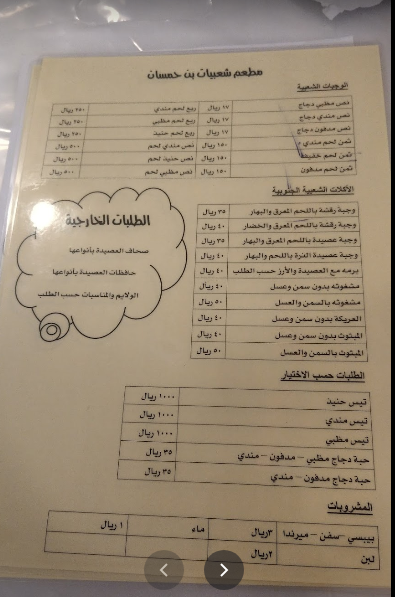 مطعم شعبيات بن خمسان
الوجبات الشعبية
نص مظبي دجاج ١٧ ريال ربع لحم مندي ٢٥٠ ريال
نص مندي دجاج ١٧ ريال ربع لحم مظبي ٢٥٠ ريال
نص مدفون دجاج ١٧ ريال ربع لحم حنيذ ٢٥٠ ريال
ثمن لحم مندي ١٥٠ ريال نص مندي لحم ٥٠٠ ريال
ثمن لحم ١٥٠ ريال نص حنيذ لحم ٥٠٠ ريال
ثمن لحم مدفون ١٥٠ ريال نص مظبي لحم ٥٠٠ ريال
الأكلات الشعبية الجنوبية
وجبة رقشة باللحم المعرق والبهار ٣٥ ريال
وجبة رقشة باللحم المعرق والخضار ٤٠ ريال
وجبة عصيدة باللحم المعرق والبهار ٣٥ ريال
وجبة عصيدة الذرة باللحم والبهار ٤٠ ريال
برمه مع العصيدة والأرز حسب الطلب ٤٠ ريال
مشغوثه بدون سمن وعسل ٤٠ ريال
مشغوثه بالسمن والعسل ٥٠ ريال
العريكة بدون سمن وعسل ٤٠ ريال
المبثوث بدون سمن وعسل ٤٠ ريال
المبثوث بالسمن والعسل ٥٠ ريال
الطلبات الخارجية
صحاف العصيدة بأنواعها
حافظات العصيدة بأنواعها
الولايم والمناسبات حسب الطلب
الطلبات حسب الاختيار
تيس حنيذ ١٠٠٠ ريال
تيس مندي ١٠٠٠ ريال
تيس مظبي ١٠٠٠ ريال
حبة دجاج مظبي – مدفون – مندي ٣٥ ريال
حبة دجاج مدفون – مندي ٣٥ ريال
المشروبات
بيبسي – سفن – ميرندا ٣ريال ماء ١ ريال
لبن ٢ريال